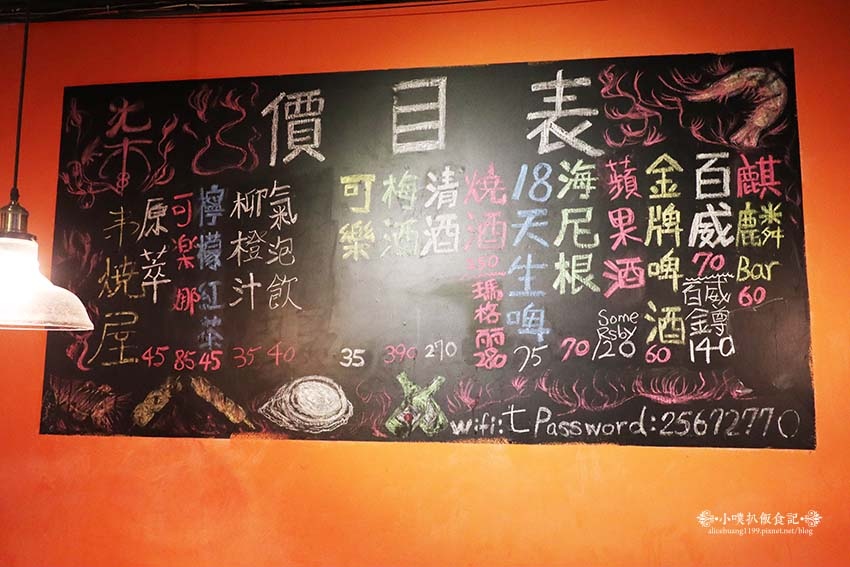 價目表
麒麟Bar 60
百威 70
百威金罇 140
金牌啤酒 60
蘋果酒 Somersby 120
海尼根 70
18天生啤 95
燒酒 350
瑪格麗 280
清酒 270
梅酒 390
可樂 35
氣泡飲 40
柳橙汁 35
檸檬紅茶 45
可樂娜 85
原萃 45
串燒屋
wifi:七 Password:25672770
小噗扒飯食記
alicehuang1199.pixnet.net/blog